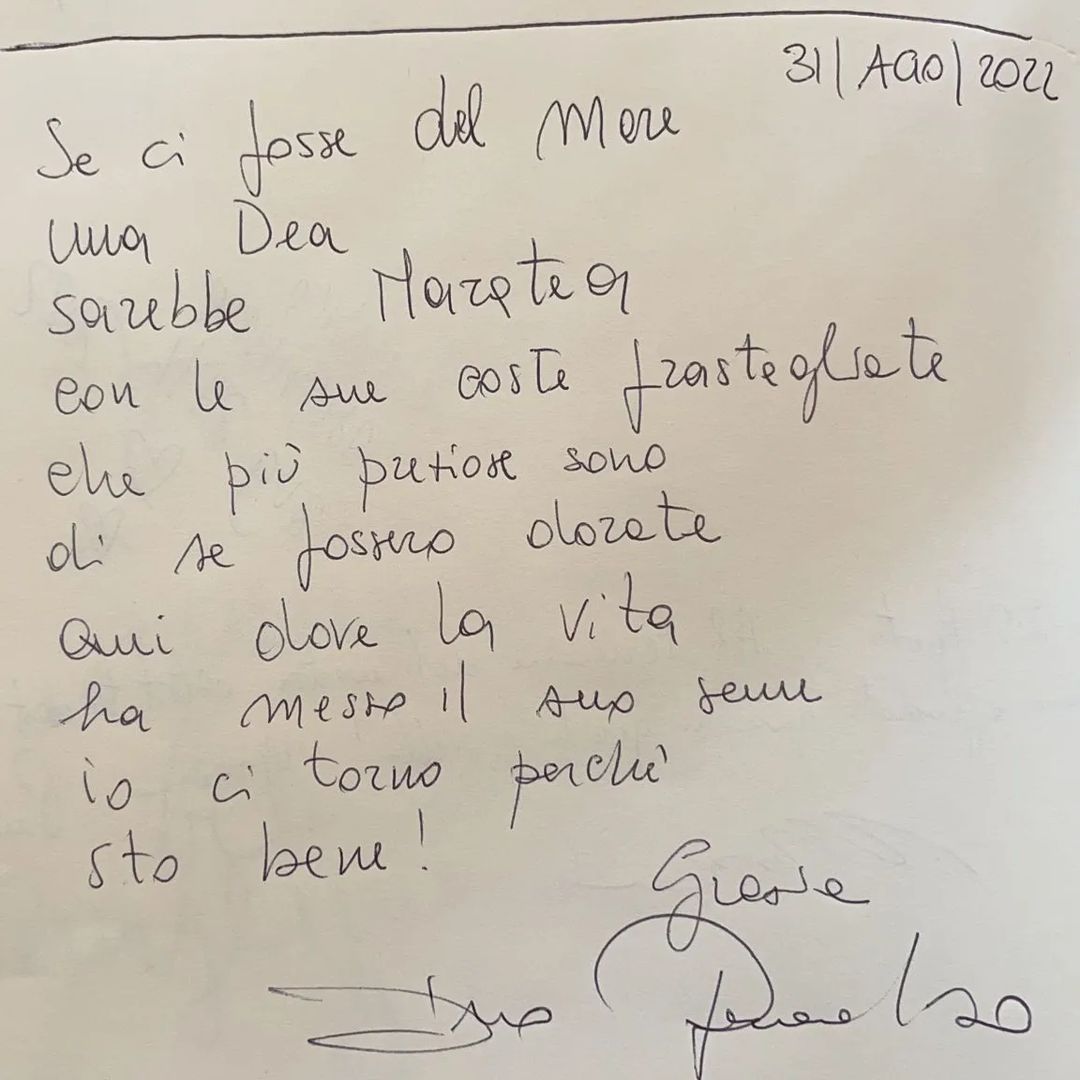 31/AGO/2022
Se ci fosse del mare
una Dea
sarebbe Maratea
con le sue coste frastagliate
che più preziose sono
di se fossero dorate
Qui dove la vita
ha messo il suo seme
io ci torno perchè
sto bene!
Grazie